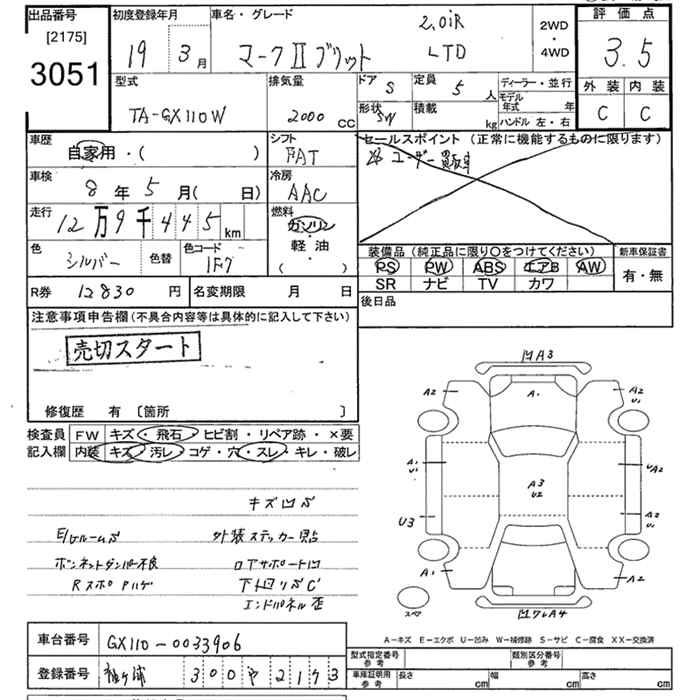 出品番号 初度登録年月 車名・グレード 評価点
[2175]
3051
19年 3月 マークⅡブリット 2.0iR LTD 2WD・4WD 3.5
型式 排気量 ドア S 定員 5人 ディーラー・並行 外装 内装
TA-GX110W 2000 CC 形状 SW 積載 kg モデル年式 年 C C
ハンドル 左・右
車歴 シフト セールスポイント (正常に機能するものに限ります)
自家用・( ) FAT ユーザー買取車
車検 冷房
8年 5月( 日) AAC
走行 燃料
12万9千445km ガソリン
軽油
( )
色 シルバー 色替 色コード 1F7
装備品 (純正品に限り○をつけてください) 新車保証書
PS PW ABS エアB AW 有・無
SR ナビ TV カワ
R券 12830 円 名変期限 月 日 後日品
注意事項申告欄 (不具合内容等は具体的に記入して下さい)
売切スタート
修復歴 有 [箇所 ]
検査員 FW キズ・飛石・ヒビ割・リペア跡・×要
記入欄 内装 キズ・汚レ・コゲ・穴・スレ・キレ・破レ
キズ凹
外装ステッカー
ボンネットダンパー不良 ロアサポート凹
Rスポ ハゲ 下回リ
エンドパネル歪
凹A3
A2 A1 A2
U1
A1 U1 A3 U2 UA2
U3 A2 U1
A1 A2
スペア A4
A-キズ E-エクボ U-凹み W-補修跡 S-サビ C-腐食 XX-交換済
車台番号 GX110-0033906
登録番号 袖ヶ浦 300 や 2173
型式指定番号 参考 類別区分番号 参考
車庫証明用 参考 長さ cm 幅 cm 高さ cm